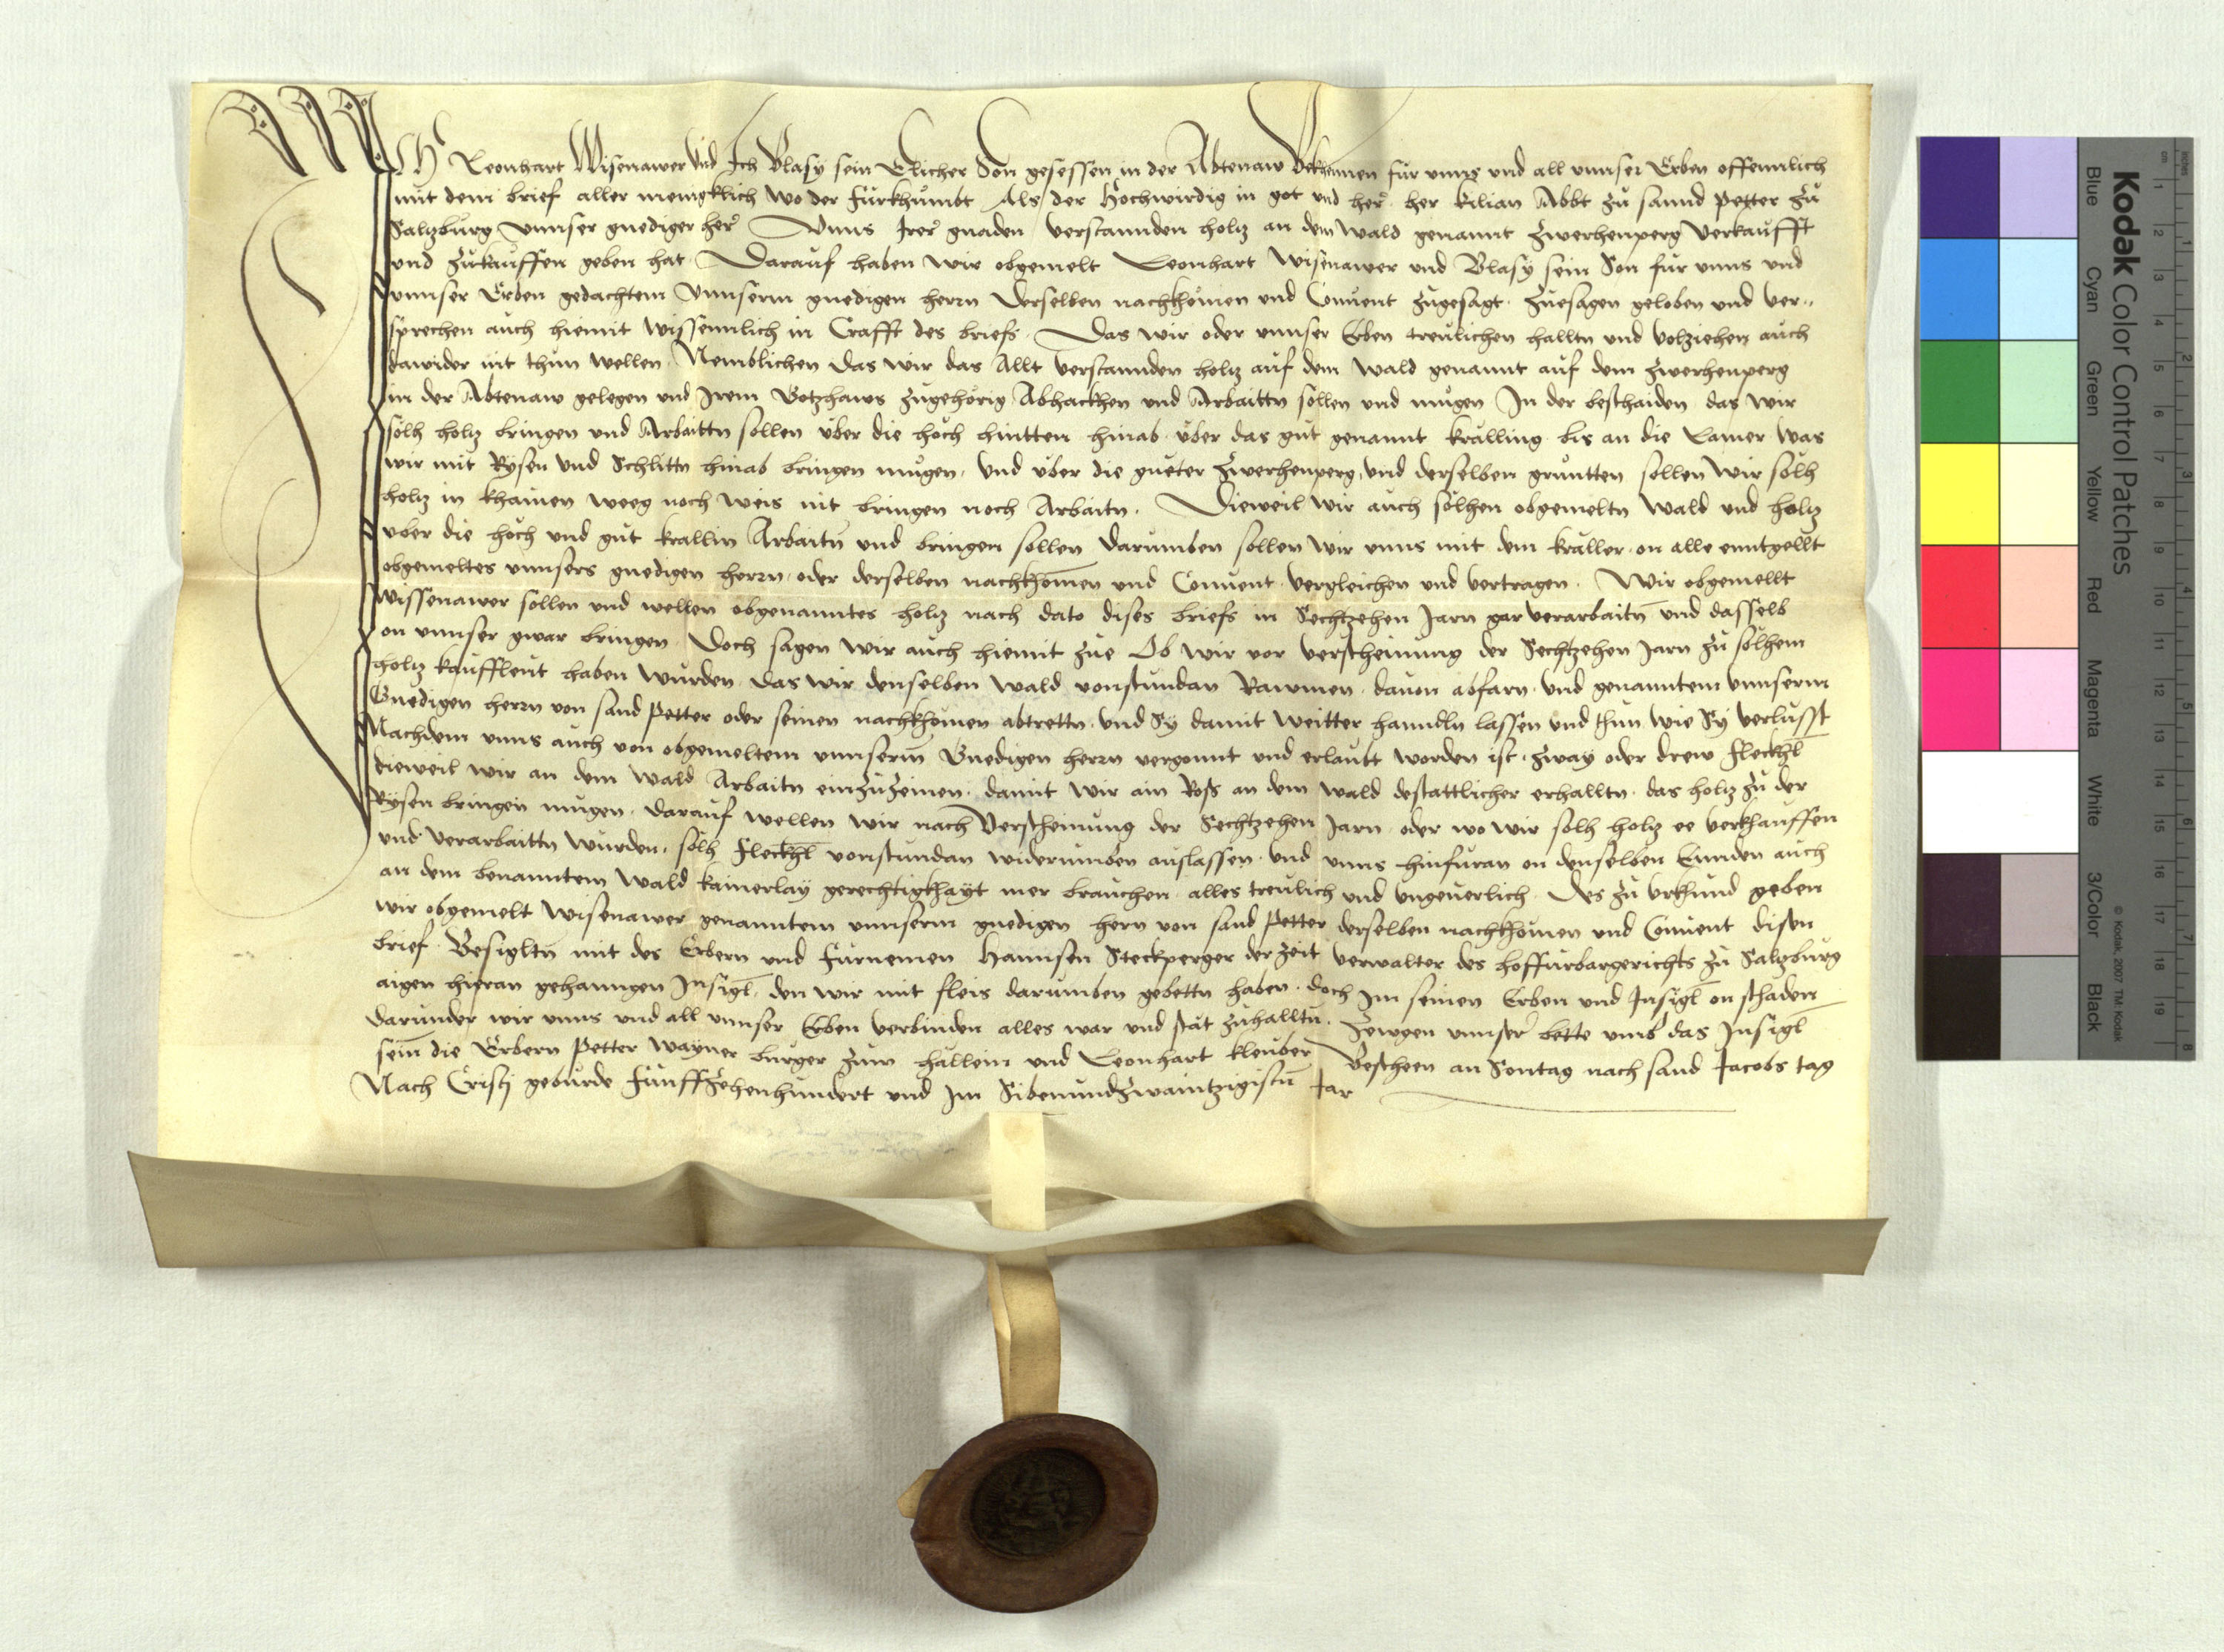 Ich Leonhart Wisenawer Und Ich Blasy sein Elicher Son gesessen in der Abtenaw Bekhennen für unns und all unnser Erben offennlich
mit dem brief aller menigklich wo der fürkhumbt Als der Hochwirdig in got und her her kilian Abbt zu sannd Petter zu
Saltzburg unnser gnediger her Unns Irer gnaden verstannden holtz an dem Wald genannt Zwerhenperg Verkaufft
und zukauffen geben hat Darauf haben wir obgemelt Leonhart Wisenawer und Blasy sein Son für unns und
unnser Erben gedachtem Unnserm gnedigen herrn Derselben nachkhomen und Convent zugesagt zuesagen geloben und ver„
sprechen auch hiemit wissennlich in Crafft des briefs Das wir oder unnser Erben treulichen halltn und volziehen auch
dawider nit thun wellen Nemblichen das wir das Allt verstannden holtz auf dem wald genannt auf dem Zwerhenperg
in der Abtenaw gelegen und Irem Gotzhaws zugehörig Abhackhen und Arbaittn sollen und mugen In der beschaiden das wir
solh holtz bringen und Arbaittn sollen über die hoch hintten hinab über das gut genannt kralling bis an die Lamer Was
wir mit Rysen und Schlittn hinab bringen mugen und über die gueter Zwerhenperg und derselben grüntten sollen wir solh
holtz in khainen weeg noch weis nit bringen noch Arbaitn Dieweil wir auch solhen obgemeltn wald und holtz
uber die hoch und gut krallin Arbaitn und bringen sollen Darumben sollen wir unns mit dem kraller on alle enntgellt
obgemeltes unnsers gnedigen herrn oder derselben nachkhomen und Convent vergleichen und vertragen Wir obgemellt
Wissenawer sollen und wellen obgenanntes holtz nach dato dises briefs in Sechtzehen Jarn gar verarbaitn und dasselb
on unnser gwar bringen Doch sagen wir auch hiemit zue Ob wir vor verscheinung der Sechtzehen Jarn zu solhem
holtz kauffleut haben wurden das wir denselben wald vonstundan Rawmen davon abfarn und genanntem unnserm
Gnedigen herrn von sand Petter oder seinen nachkhomen abtrettn und Sy damit weitter hanndln lassen und thun wie Sy verlusst
Nachdem unns auch von obgemeltem unnserm Gnedigen herrn vergonnt und erlaubt worden ist zway oder drew fleckhl
dieweil wir an dem wald Arbaitn einzuzeinen damit wir ain Ross an dem wald destattlicher erhalltn das holtz zu der
Rysen bringen mugen darauf wellen wir nach Verscheinung der Sechtzehen Jarn oder wo wir solh holtz ee verkhauffen
und verarbaittn wurden solh fleckhl vonstundan widerumben auslassen und unns hinfuran on denselben Ennden auch
an dem benanntem wald kainerlay gerechtigkhayt mer brauchen alles treulich und ungeverlich Des zu Urkhund geben
wir obgemelt Wisenawer genanntem unnserm gnedigen hern von sand Petter derselben nachkhomen und Convent disen
brief Besigltn mit des Erbern und fürnemen Hannsen Steckperger der zeit verwalter des hoffurbargerichts zu Saltzburg
aigen hieran gehanngen Insigl den wir mit fleis darumben gebettn haben doch im seinen Erben und Insigl on schaden
darunder wir unns und all unnser Erben verbinden alles war und stät zuhalltn Zewgen unnser bette umb das Insigl
sein die Erbern Petter Wayner burger zum hallein und Leonhart kleuber Bescheen an Sontag nach sand Jacobs tag
Nach Cristj geburde fünffzehenhundert und Im Sibenundzwaintzigistn Jar
Kodak Color Control Patches
Blue Cyan Green Yellow Red Magenta White 3/Color Black
© Kodak, 2007 TM: Kodak
cm 1 2 3 4 5 6 7 8 9 10 11 12 13 14 15 16 17 18 19
inches 1 2 3 4 5 6 7 8